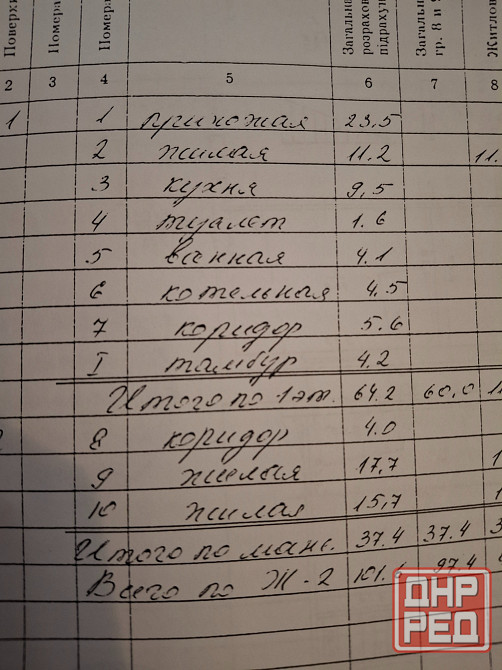 Поверхи
Номера
Номера
Загальна
розрахов
підрахун
Загальн
гр. 8 и 9
Житлов
2 3 4 5 6 7 8
1 1 прихожая 23,5
2 жилая 11.2 11.
3 кухня 9,5
4 туалет 1.6
5 ванная 4.1
6 котельная 4.5
7 коридор 5.6
I тамбур 4.2
Итого по 1 эт. 64.2 60,0 11
8 коридор 4.0
9 жилая 17,7 1
10 жилая 15,7 1
Итого по манс. 37.4 37.4 3
Всего по Ж-2 101.6 97.4
ДНР
РЕД